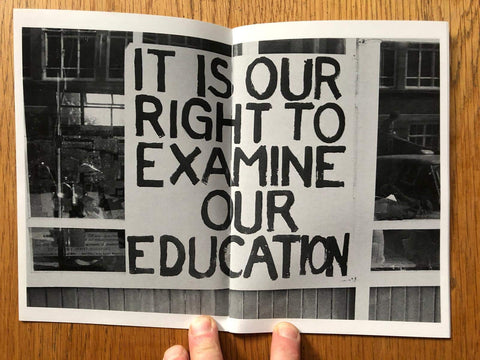 IT IS OUR
RIGHT TO
EXAMINE
OUR
EDUCATION